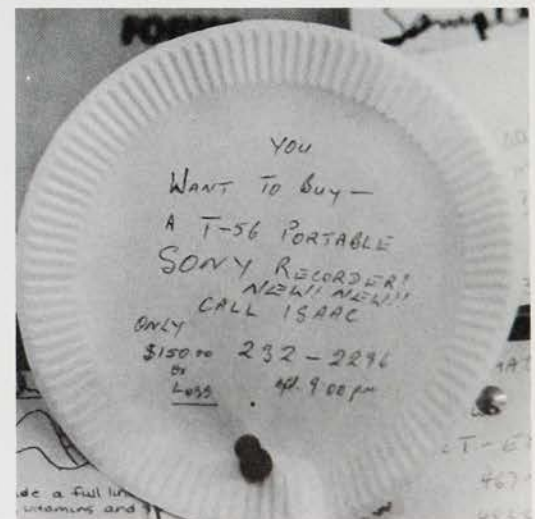 YOU
WANT TO BUY —
A T-56 PORTABLE
SONY RECORDER!
NEW! NEW!!
CALL ISAAC
ONLY
$150.00 232-2296
or
Less 9:00 pm
ide a full lin
vitamins and